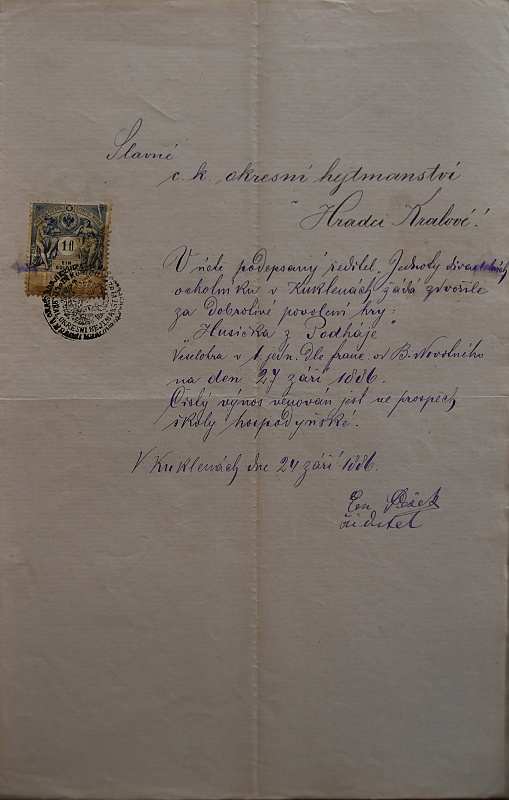 Slavné
c. k. okresní hejtmanství
Hradci Králové!
1 fl
EIN
V úctě podepsaný ředitel Jednoty divadelních
ochotníků v Kuklenách žádá zdvořile
za dobrotivé povolení hry:
"Husička z Podháje"
Veselohra v 1 jedn. dle franc. od B. Novotného
na den 27 září 1886.
Čistý výnos věnován jest ve prospěch
školy hospodyňské.
V Kuklenách dne 24 září 1886.
ředitel